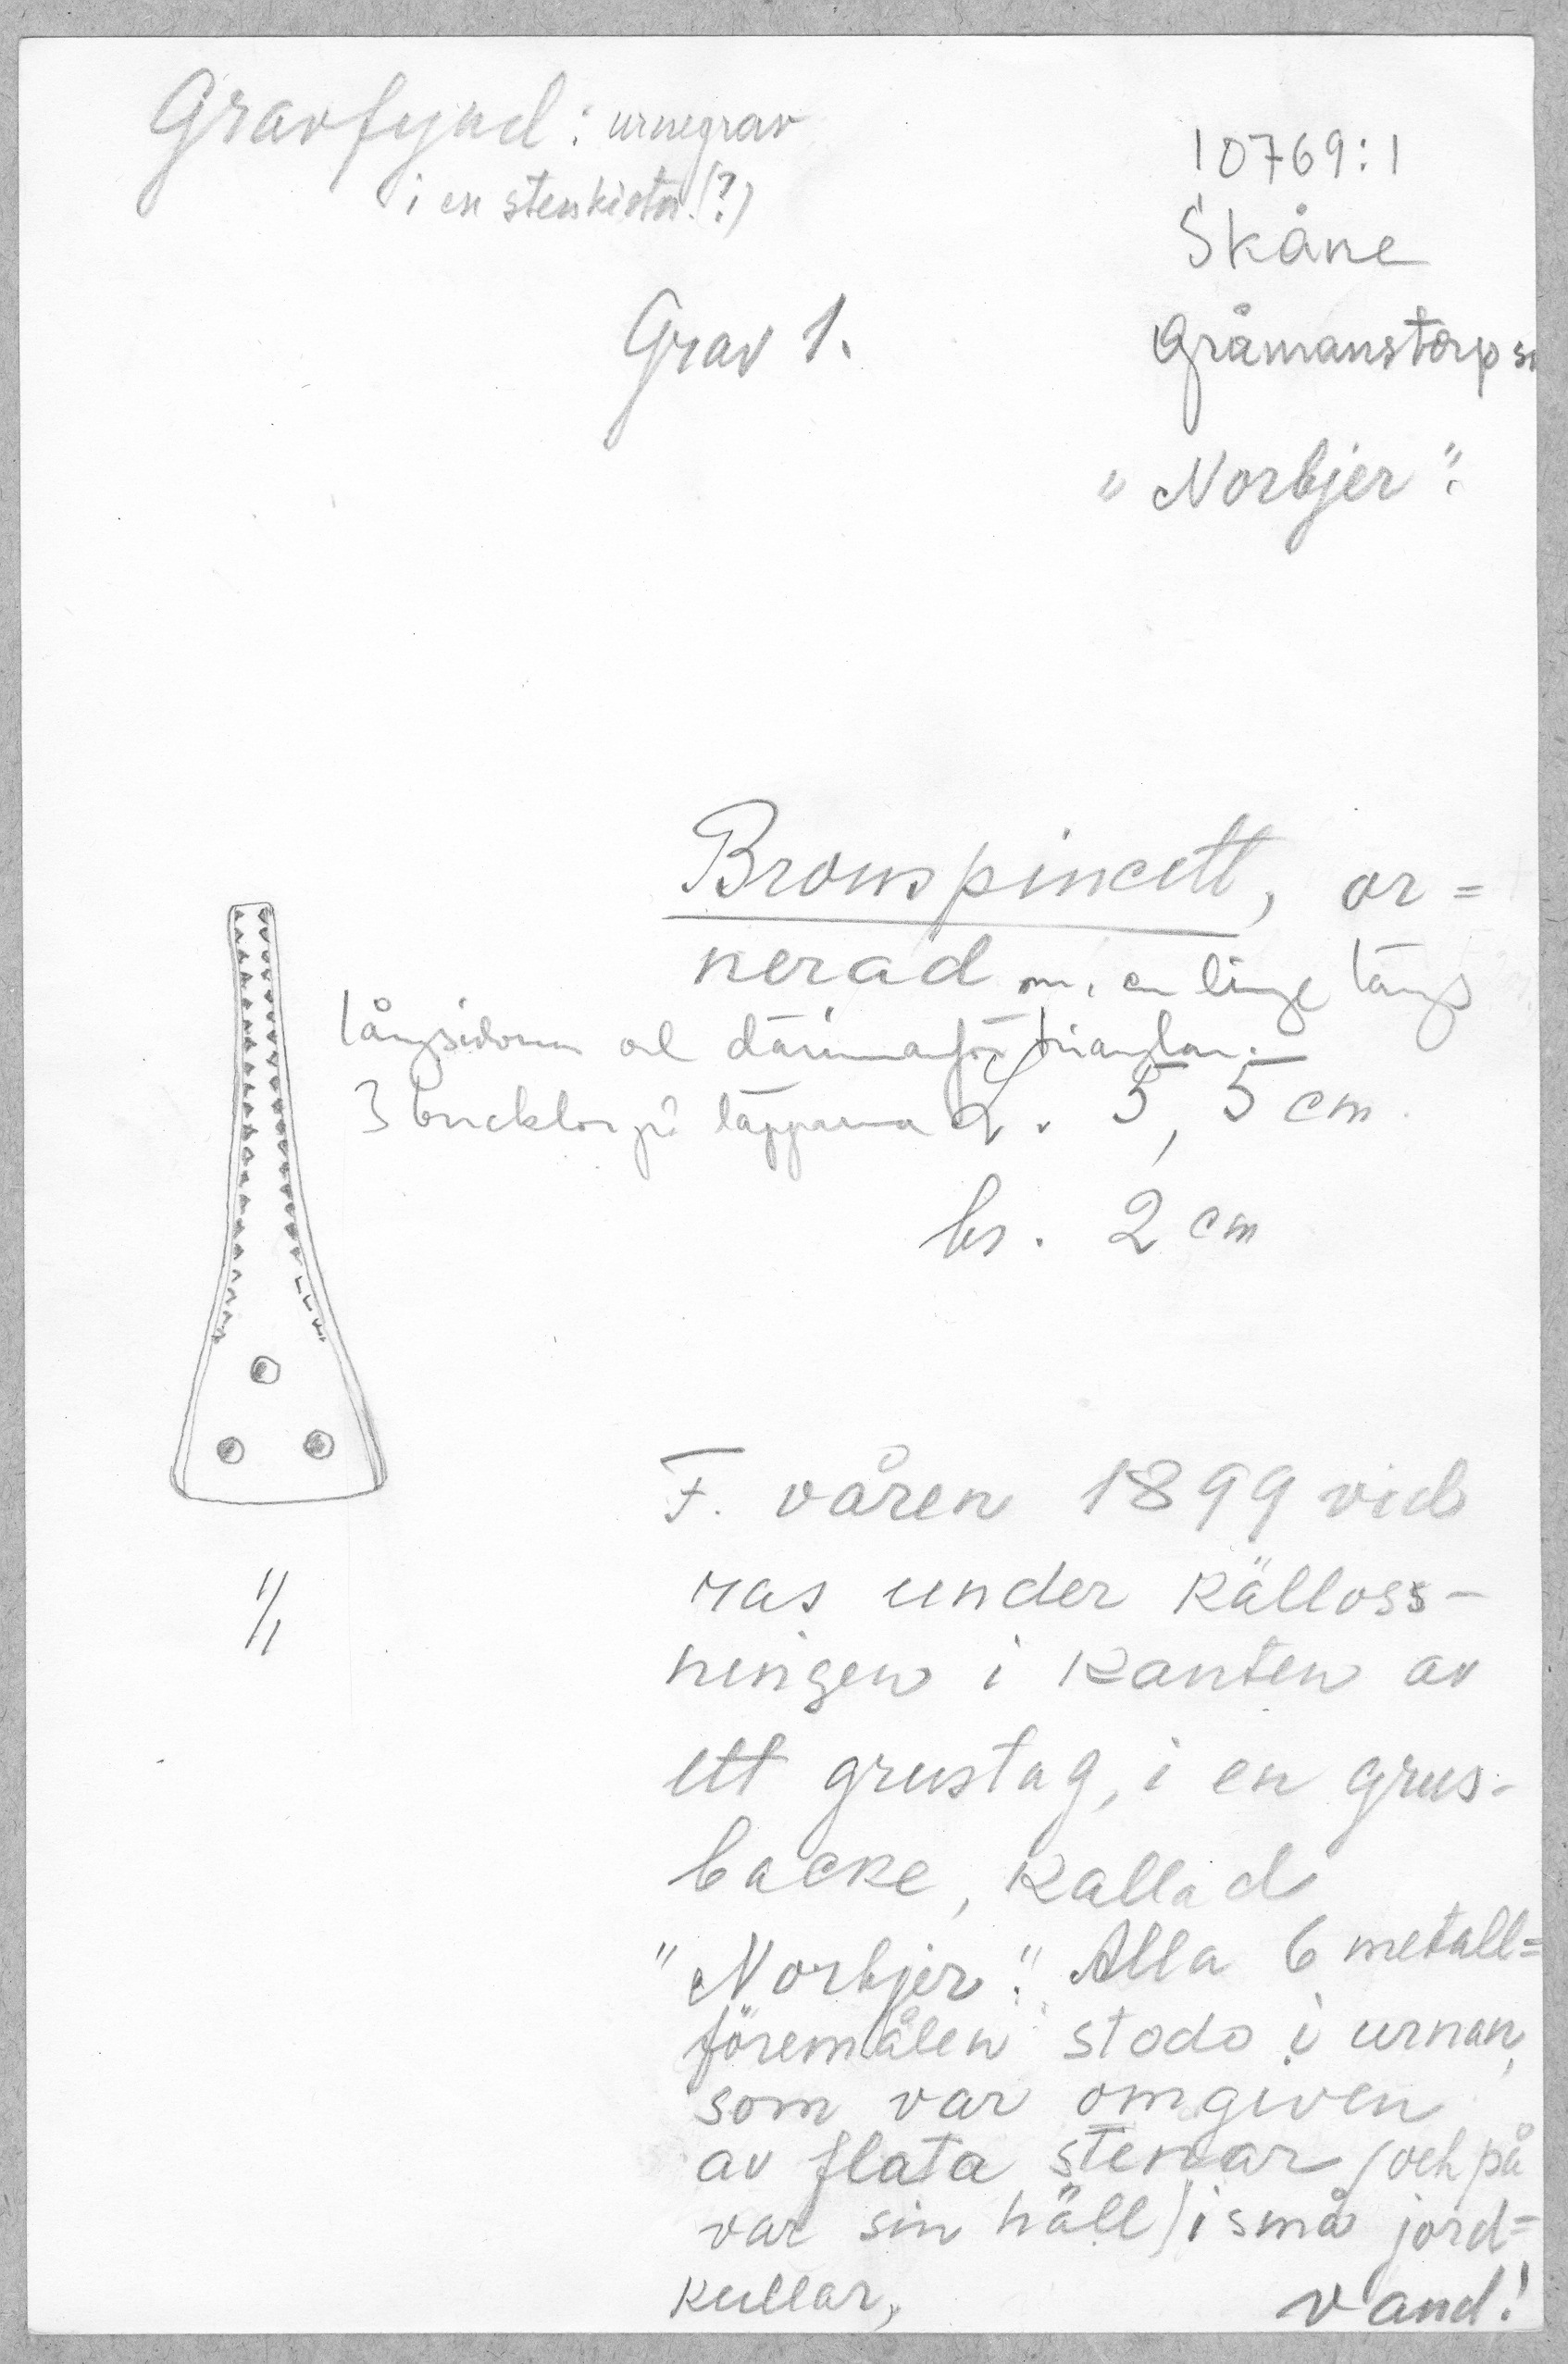 Gravfynd: urnegrav
i en stenkista (?)
10769:1
Skåne
Gråmanstorp sn
"Norbjer".
Grav 1.
Bronspincett, or=
nerad m. en linje längs
långsidorna och därinnanför trianglar.
3 bucklor på läpparna L. 5,5 cm.
br. 2 cm
1/1
F. våren 1899 vid
ras under källoss-
ningen i kanten av
ett grustag, i en grus-
backe, kallad
"Norbjer". Alla 6 metall=
föremålen stodo i urnan,
som var omgiven
av flata stenar (och på
var sin häll) i små jord=
kullar,
vänd!